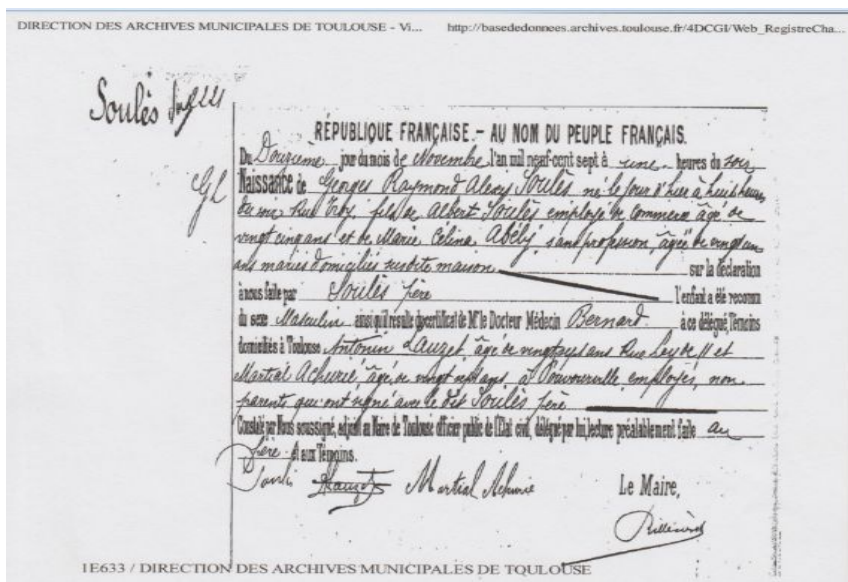 DIRECTION DES ARCHIVES MUNICIPALES DE TOULOUSE - Vi... http://basededonnees.archives.toulouse.fr/4DCGI/Web_RegistreCha...
Soulès
RÉPUBLIQUE FRANÇAISE. - AU NOM DU PEUPLE FRANÇAIS.
Du Douzième jour du mois de Novembre l'an mil neuf-cent sept à une heures du soir
Naissance de Georges Raymond Alexis Soulès né le jour d'hier à huit heures
du soir Rue fils de Albert Soulès employé de commerce âgé de
vingt cinq ans et de Marie Célina Abély, sans profession, âgée de vingt un
ans mariés domiciliés susdite maison sur la déclaration
à nous faite par Soulès père l'enfant a été reconnu
du sexe Masculin ainsi qu'il résulte du certificat de Mr le Docteur Médecin Bernard à ce délégué, Témoins
domiciliés à Toulouse Antonin Lauzet âgé de ans Rue 11 et
Martial Achurié, âgé de vingt sept ans, à Pouvourville, employés, non
parents qui ont signé avec le dit Soulès père
Constaté par Nous soussigné, adjoint au Maire de Toulouse officier public de l'Etat civil, délégué par lui, lecture préalablement faite au
père et aux Témoins.
Soulès Lauzet Martial Achurié Le Maire,
1E633 / DIRECTION DES ARCHIVES MUNICIPALES DE TOULOUSE